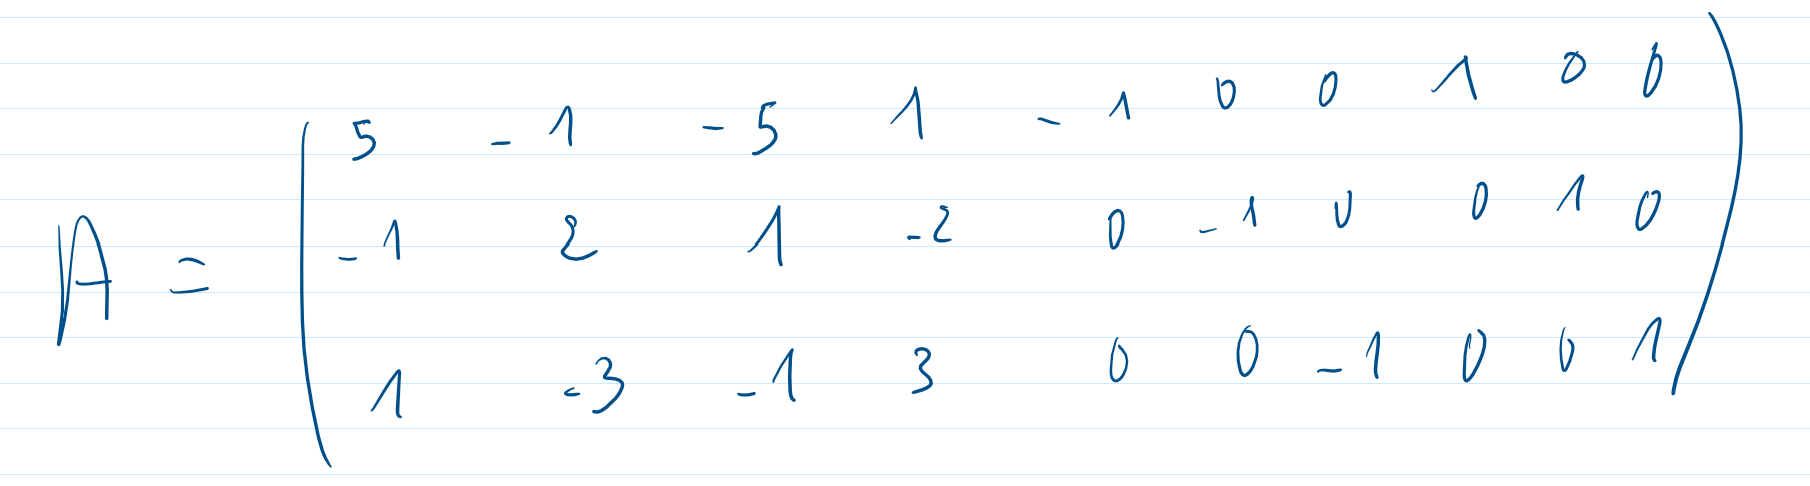 5 -1 -5 1 -1 0 0 1 0 0
A = -1 2 1 -2 0 -1 0 0 1 0
1 -3 -1 3 0 0 -1 0 0 1